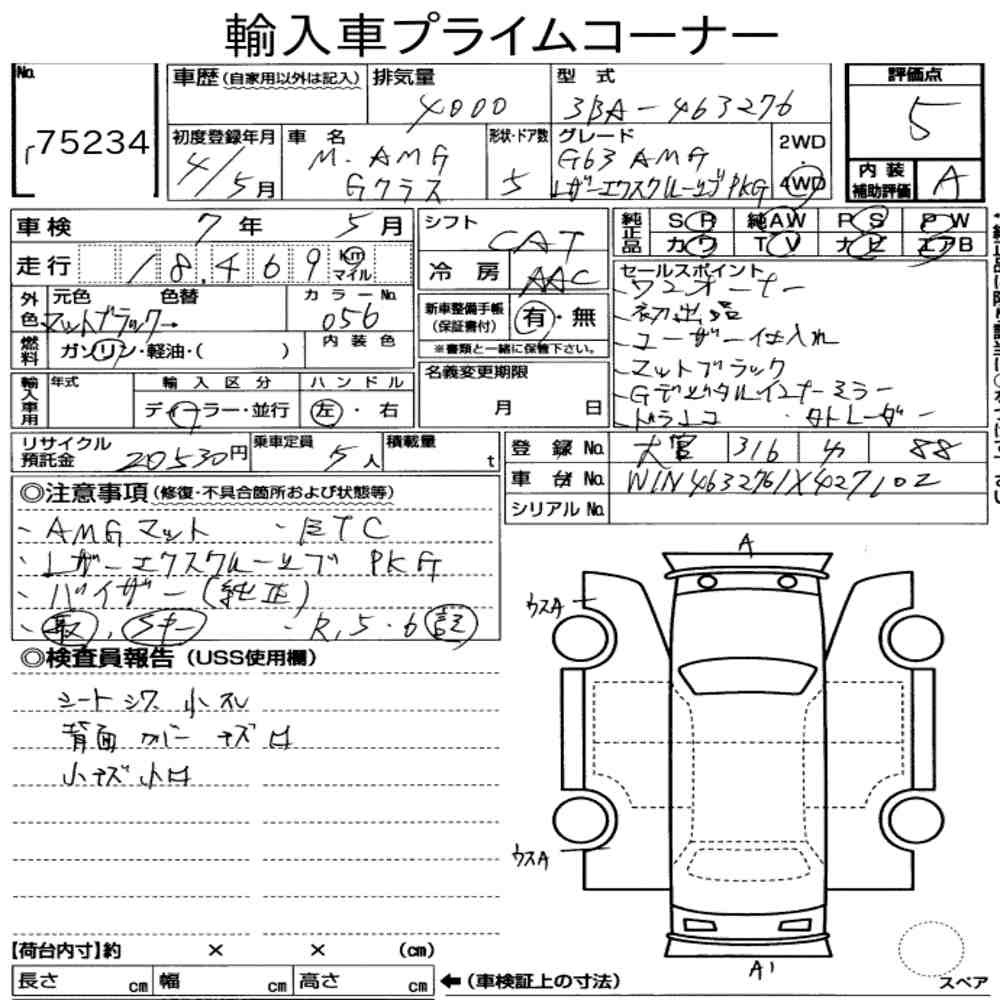 輸入車プライムコーナー
No.
75234
車歴(自家用以外は記入)
排気量
4000
型式
3BA-463276
評価点
5
初度登録年月
4/5月
車名
M・AMG
Gクラス
形状・ドア数
5
グレード
G63 AMG
レザーエクスクルーシブPKG
2WD
4WD
内装
補助評価
A
車検 7年 5月
シフト
CAT
純正品
SR 純AW PS PW
カワ TV ナビ エアB
走行 18,469 Km マイル
冷房 AAC
セールスポイント
-ワンオーナー
-初出品
-ユーザー仕入れ
-マットブラック
-Gデジタルインナーミラー
-ドラレコ ・タトレーダー
外色
元色 色替
マットブラック→
カラーNo.
056
新車整備手帳
(保証書付)
有・無
※書類と一緒に保管下さい。
燃料
ガソリン・軽油・( )
内装色
名義変更期限
月 日
輸入車用
年式
輸入区分
ディーラー・並行
ハンドル
左・右
リサイクル
預託金
20530円
乗車定員
5人
積載量
t
登録No. 大宮 316 カ 88
車台No. W1N4632761X427102
シリアルNo.
◎注意事項(修復・不具合箇所および状態等)
・AMGマット ・ETC
・レザーエクスクルーシブ PKG
・バイザー(純正)
・取，Sキー ・R,5・6記
◎検査員報告(USS使用欄)
シートシワ 小スレ
背面カバー キズ凹
小キズ小凹
A
ウスA
ウスA
A'
スペア
【荷台内寸】約 × × (cm)
長さ cm 幅 cm 高さ cm ←(車検証上の寸法)